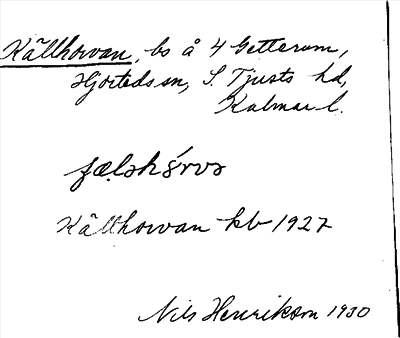 Källhorvan, bs å 4 Getterum,
Hjorteds sn, S. Tjusts hd,
Kalmar l.
Källhorvan kb 1927
Nils Henrikson 1930